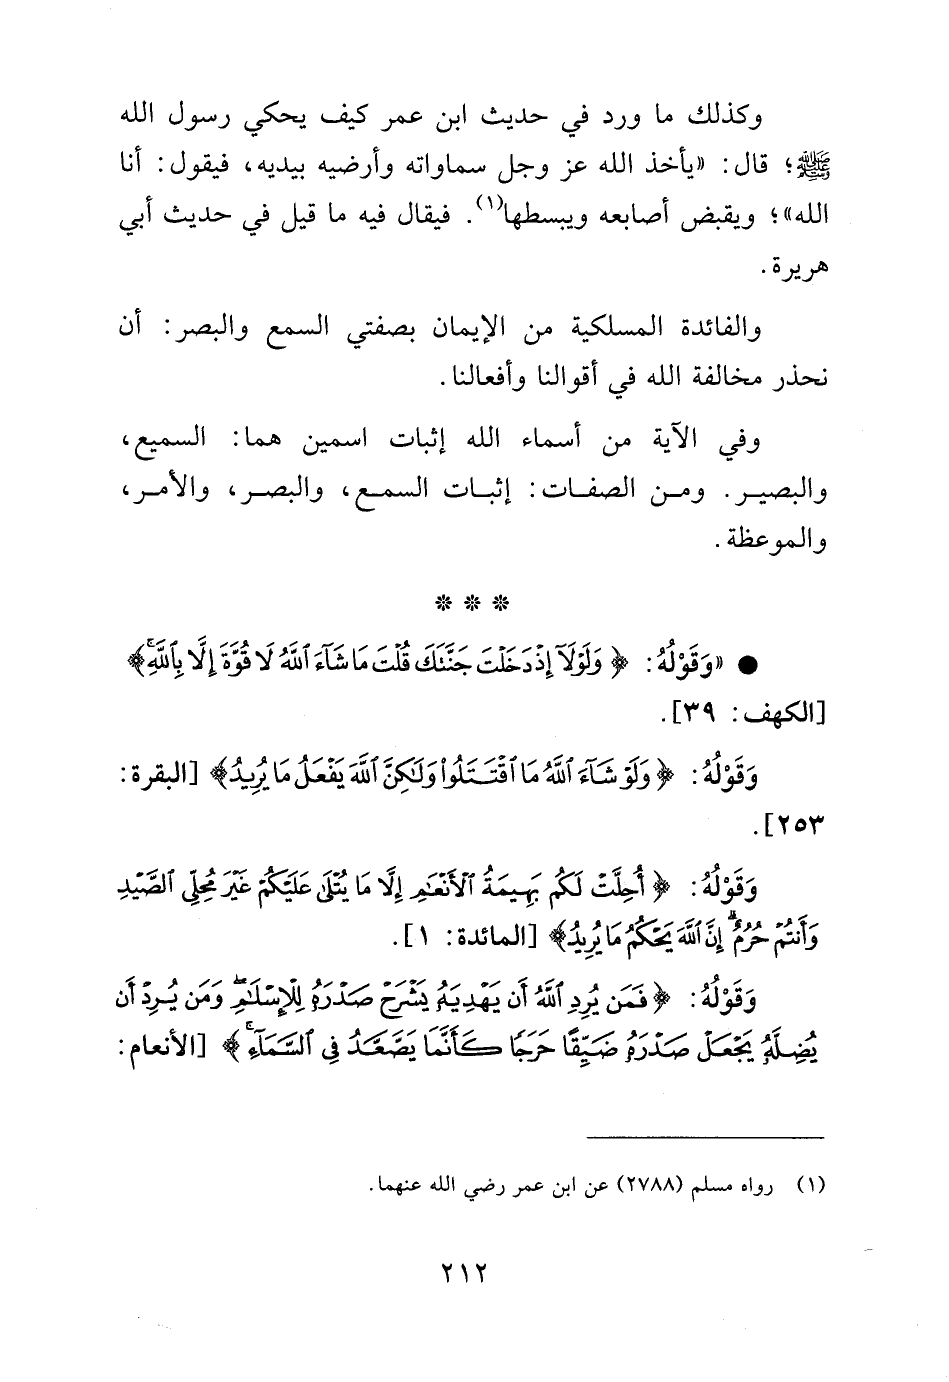 وكذلك ما ورد في حديث ابن عمر كيف يحكي رسول الله
ﷺ؛ قال: «يأخذ الله عز وجل سماواته وأرضيه بيديه، فيقول: أنا
الله»؛ ويقبض أصابعه ويبسطها(١). فيقال فيه ما قيل في حديث أبي
هريرة.
والفائدة المسلكية من الإيمان بصفتي السمع والبصر: أن
نحذر مخالفة الله في أقوالنا وأفعالنا.
وفي الآية من أسماء الله إثبات اسمين هما: السميع،
والبصير. ومن الصفات: إثبات السمع، والبصر، والأمر،
والموعظة.
* * *
● «وَقَوْلُهُ: ﴿وَلَوْلَآ إِذْ دَخَلْتَ جَنَّتَكَ قُلْتَ مَا شَآءَ ٱللَّهُ لَا قُوَّةَ إِلَّا بِٱللَّهِۚ﴾
[الكهف: ٣٩].
وَقَوْلُهُ: ﴿وَلَوْ شَآءَ ٱللَّهُ مَا ٱقْتَتَلُوا۟ وَلَٰكِنَّ ٱللَّهَ يَفْعَلُ مَا يُرِيدُ﴾ [البقرة:
٢٥٣].
وَقَوْلُهُ: ﴿أُحِلَّتْ لَكُم بَهِيمَةُ ٱلْأَنْعَٰمِ إِلَّا مَا يُتْلَىٰ عَلَيْكُمْ غَيْرَ مُحِلِّى ٱلصَّيْدِ
وَأَنتُمْ حُرُمٌۗ إِنَّ ٱللَّهَ يَحْكُمُ مَا يُرِيدُ﴾ [المائدة: ١].
وَقَوْلُهُ: ﴿فَمَن يُرِدِ ٱللَّهُ أَن يَهْدِيَهُۥ يَشْرَحْ صَدْرَهُۥ لِلْإِسْلَٰمِۖ وَمَن يُرِدْ أَن
يُضِلَّهُۥ يَجْعَلْ صَدْرَهُۥ ضَيِّقًا حَرَجًا كَأَنَّمَا يَصَّعَّدُ فِى ٱلسَّمَآءِۚ﴾ [الأنعام:
(١) رواه مسلم (٢٧٨٨) عن ابن عمر رضي الله عنهما.
٢١٢